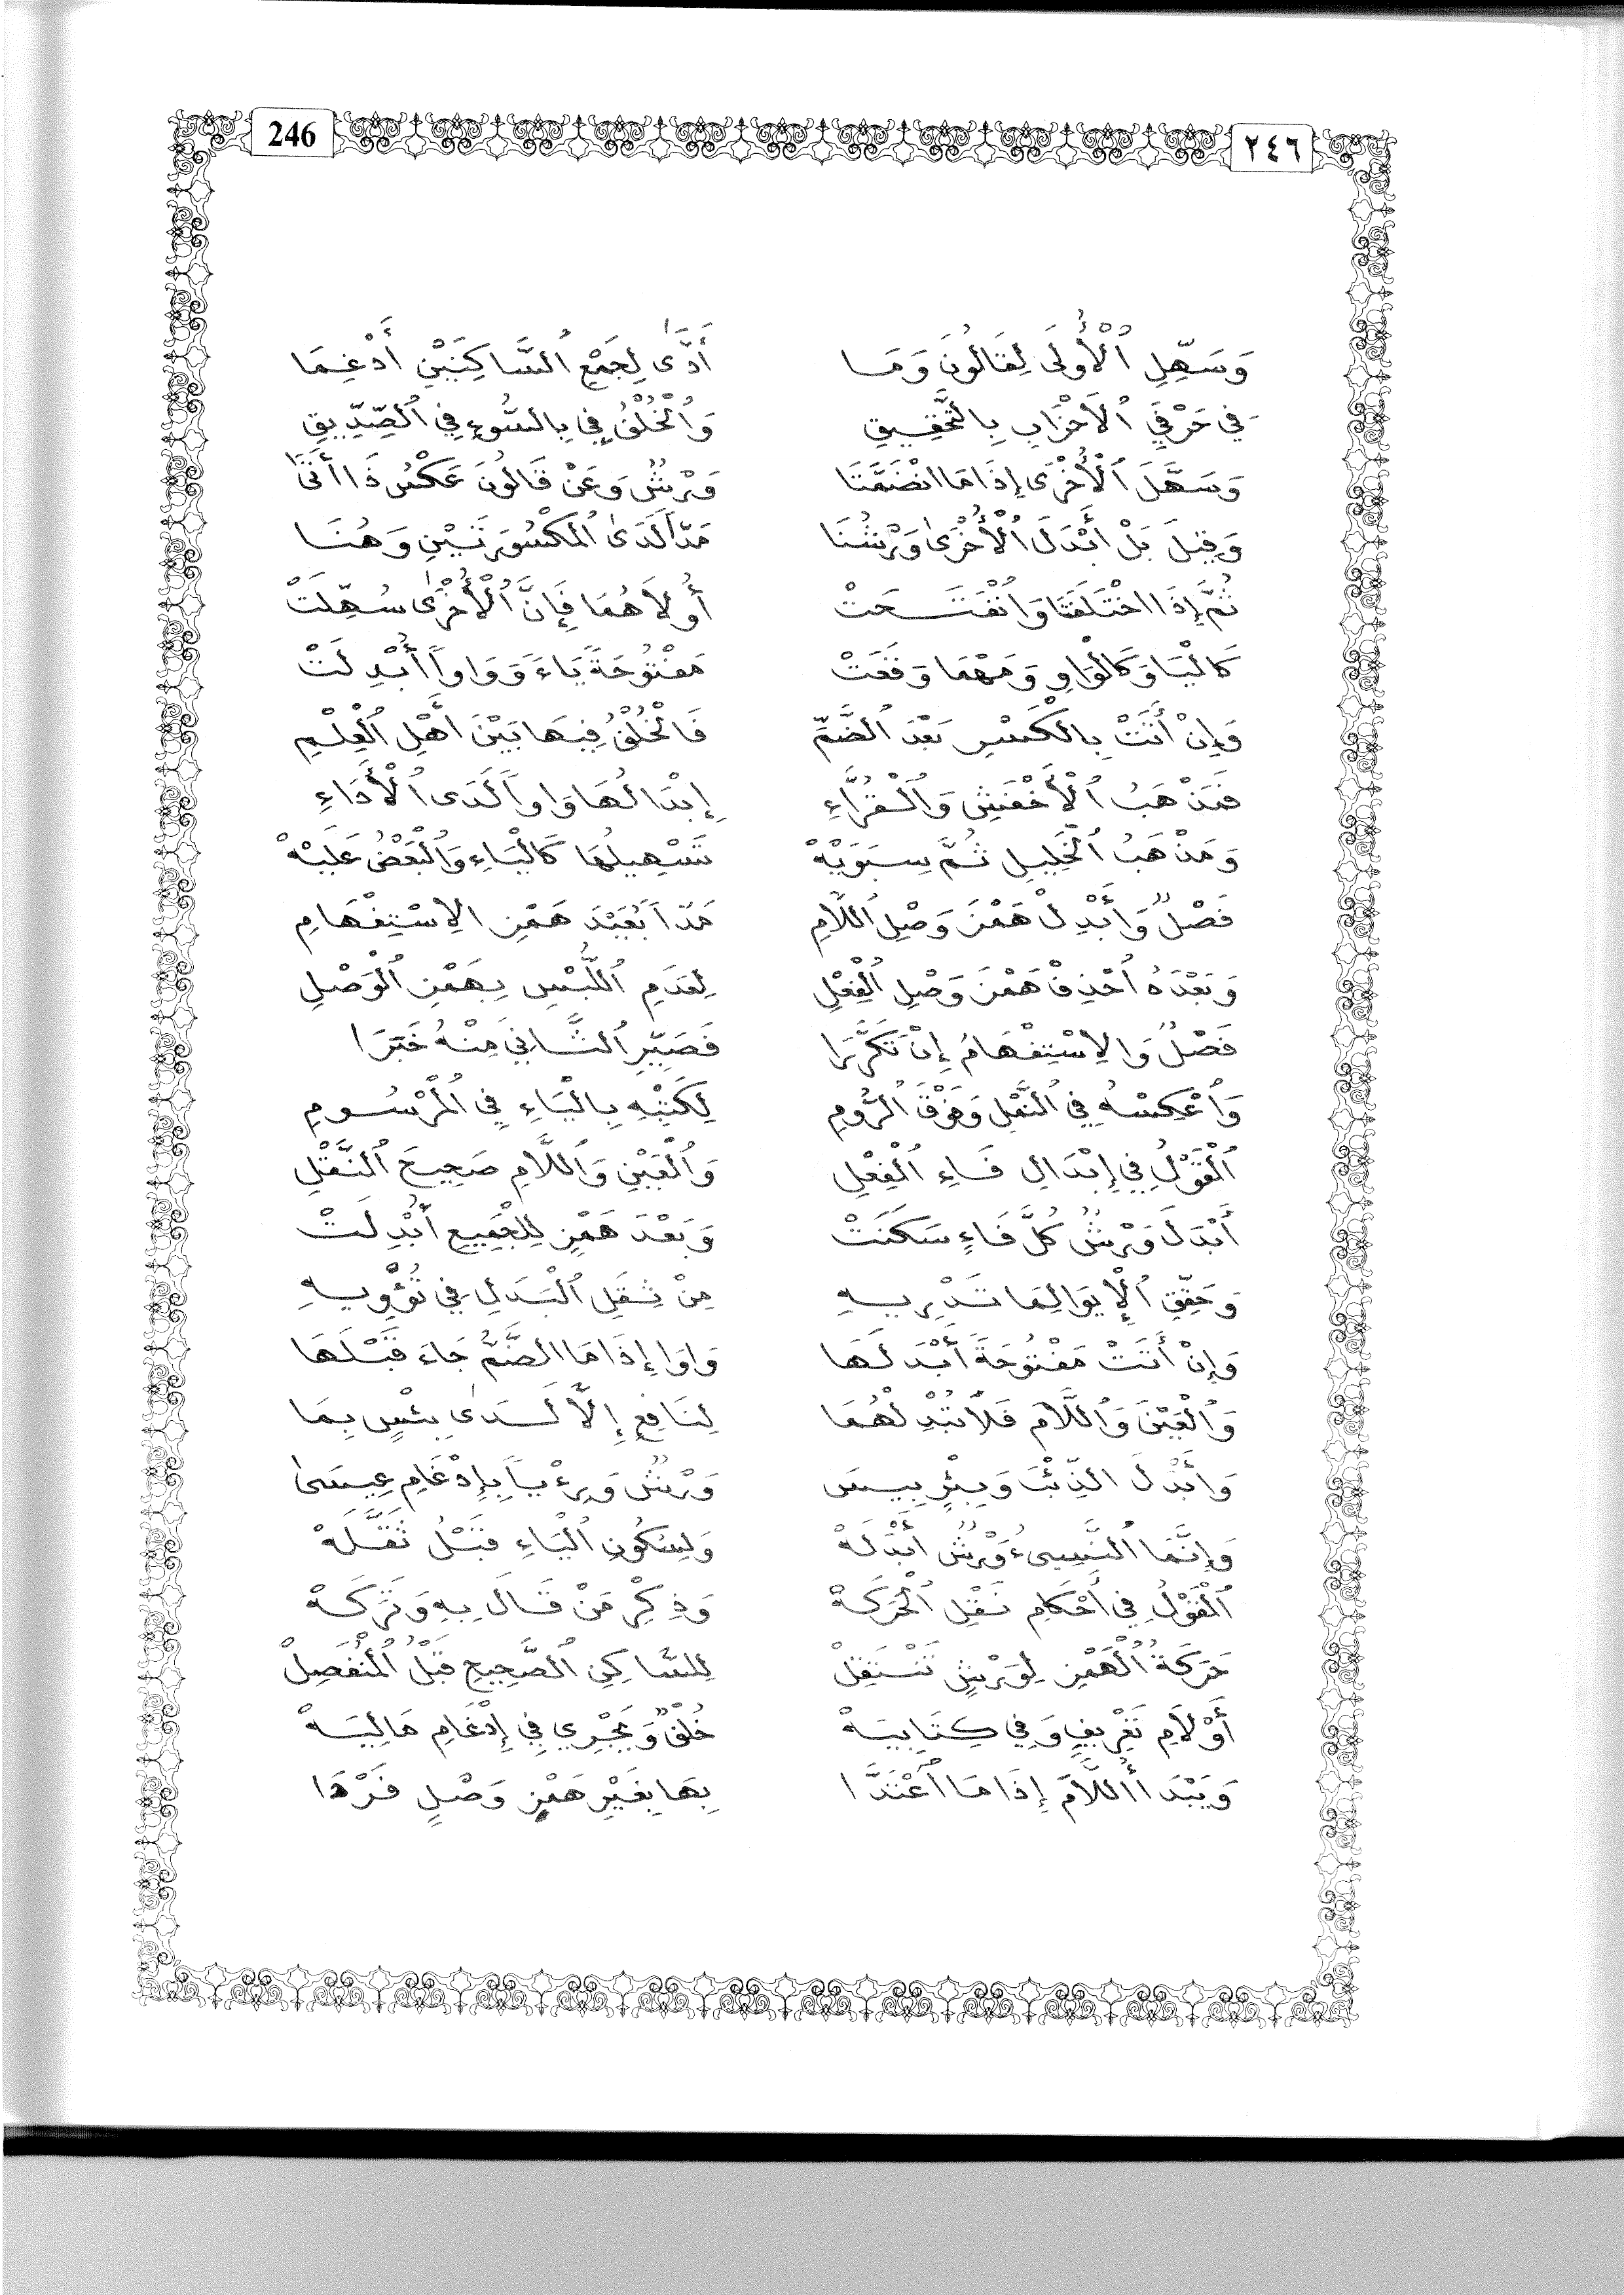 246 ٢٤٦
وَسَهِّلِ ٱلْأُولَى لِقَالُونَ وَمَا أَدَّىٰ لِجَمْعِ ٱلسَّاكِنَيْنِ أَدْغِمَا
فِي حَرْفَيِ ٱلْأَحْزَابِ بِالتَّحْقِيقِ وَٱلْخُلْفُ فِي بِالسُّوءِ فِي ٱلصِّدِّيقِ
وَسَهَّلَ ٱلْأُخْرَى إِذَا مَا انْضَمَّتَا وَرْشٌ وَعَنْ قَالُونَ عَكْسُ ذَا أَتَىٰ
وَقِيلَ بَلْ أَبْدَلَ ٱلْأُخْرَىٰ وَرْشُنَا مَدّاً لَدَىٰ ٱلْمَكْسُورَتَيْنِ وَهُنَا
ثُمَّ إِذَا اخْتَلَفَتَا وَٱنْفَتَحَتْ أُولَاهُمَا فَإِنَّ ٱلْأُخْرَىٰ سُهِّلَتْ
كَالْيَا وَكَالْوَاوِ وَمَهْمَا وَقَعَتْ مَفْتُوحَةً يَاءً وَوَاواً أُبْدِلَتْ
وَإِنْ أَتَتْ بِالْكَسْرِ بَعْدَ ٱلضَّمِّ فَالْخُلْفُ فِيهَا بَيْنَ أَهْلِ ٱلْعِلْمِ
فَمَذْهَبُ ٱلْأَخْفَشِ وَٱلْقُرَّاءِ إِبْدَالُهَا وَاواً لَدَى ٱلْأَدَاءِ
وَمَذْهَبُ ٱلْخَلِيلِ ثُمَّ سِبَوَيْهْ تَسْهِيلُهَا كَالْيَاءِ وَٱلْبَعْضُ عَلَيْهْ
فَصْلٌ وَأَبْدِلْ هَمْزَ وَصْلِ ٱللَّامِ مَدّاً بُعَيْدَ هَمْزِ الِاسْتِفْهَامِ
وَبَعْدَهُ ٱحْذِفْ هَمْزَ وَصْلِ ٱلْفِعْلِ لِعَدَمِ ٱللَّبْسِ بِهَمْزِ ٱلْوَصْلِ
فَصْلٌ وَالِاسْتِفْهَامُ إِنْ تَكَرَّرَا فَصَيِّرِ ٱلثَّانِيَ مِنْهُ خَبَرَا
وَٱعْكِسْهُ فِي ٱلنَّمْلِ وَفَوْقَ ٱلرُّومِ لِكَتْبِهِ بِالْيَاءِ فِي ٱلْمَرْسُومِ
ٱلْقَوْلُ فِي إِبْدَالِ فَاءِ ٱلْفِعْلِ وَٱلْعَيْنِ وَٱللَّامِ صَحِيحَ ٱلنَّقْلِ
أَبْدَلَ وَرْشٌ كُلَّ فَاءٍ سَكَنَتْ وَبَعْدَ هَمْزٍ لِلْجَمِيعِ أُبْدِلَتْ
وَحَقِّقِ ٱلْإِيوَا لِمَا تَدْرِيهِ مِنْ ثِقَلِ ٱلْبَدَلِ فِي تُؤْوِيهِ
وَإِنْ أَتَتْ مَفْتُوحَةً أَبْدَلَهَا وَاوًا إِذَا مَا الضَّمُّ جَاءَ قَبْلَهَا
وَٱلْعَيْنَ وَٱللَّامَ فَلَا تُبْدِلْهُمَا لِنَافِعٍ إِلَّا لَدَىٰ بِئْسٍ بِمَا
وَأَبْدَلَ الذِّئْبَ وَبِئْرٍ بِيسَ وَرْشٌ وَرِءْياً بِإِدْغَامِ عِيسَىٰ
وَإِنَّمَا ٱلنَّسِيءُ وَرْشٌ أَبْدَلَهْ وَلِسُكُونِ ٱلْيَاءِ قَبْلُ ثَقَّلَهْ
ٱلْقَوْلُ فِي أَحْكَامِ نَقْلِ ٱلْحَرَكَهْ وَذِكْرِ مَنْ قَالَ بِهِ وَتَرَكَهْ
حَرَكَةُ ٱلْهَمْزِ لِوَرْشٍ تَنْتَقِلْ لِلسَّاكِنِ ٱلصَّحِيحِ قَبْلُ ٱلْمُنْفَصِلْ
أَوْ لَامِ تَعْرِيفٍ وَفِي كِتَابِيَهْ خُلْفٌ وَيَجْرِي فِي إِدْغَامِ مَالِيَهْ
وَيَبْدَأُ ٱللَّامَ إِذَا مَا ٱعْتَدَّا بِهَا بِغَيْرِ هَمْزِ وَصْلٍ فَرْدَا